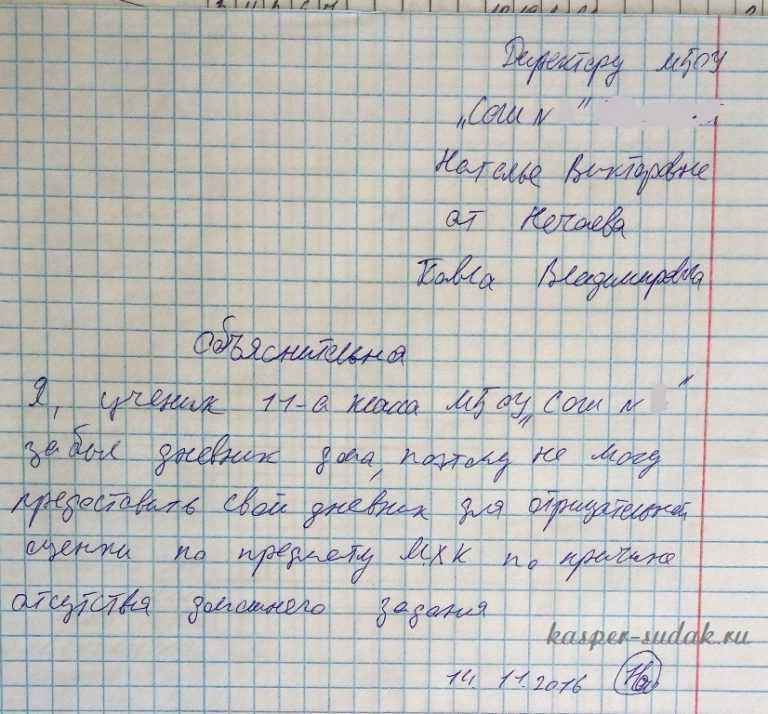 Директору МБОУ
„Сош №"
Наталье Викторовне
от Нечаева
Павла Владимировича
Объяснительна
Я, ученик 11-а класса МБОУ „Сош №"
забыл дневник дома, поэтому не могу
предоставить свой дневник для отрицательной
оценки по предмету МХК по причине
отсутствия домашнего задания
kasper-sudak.ru
14. 11.2016